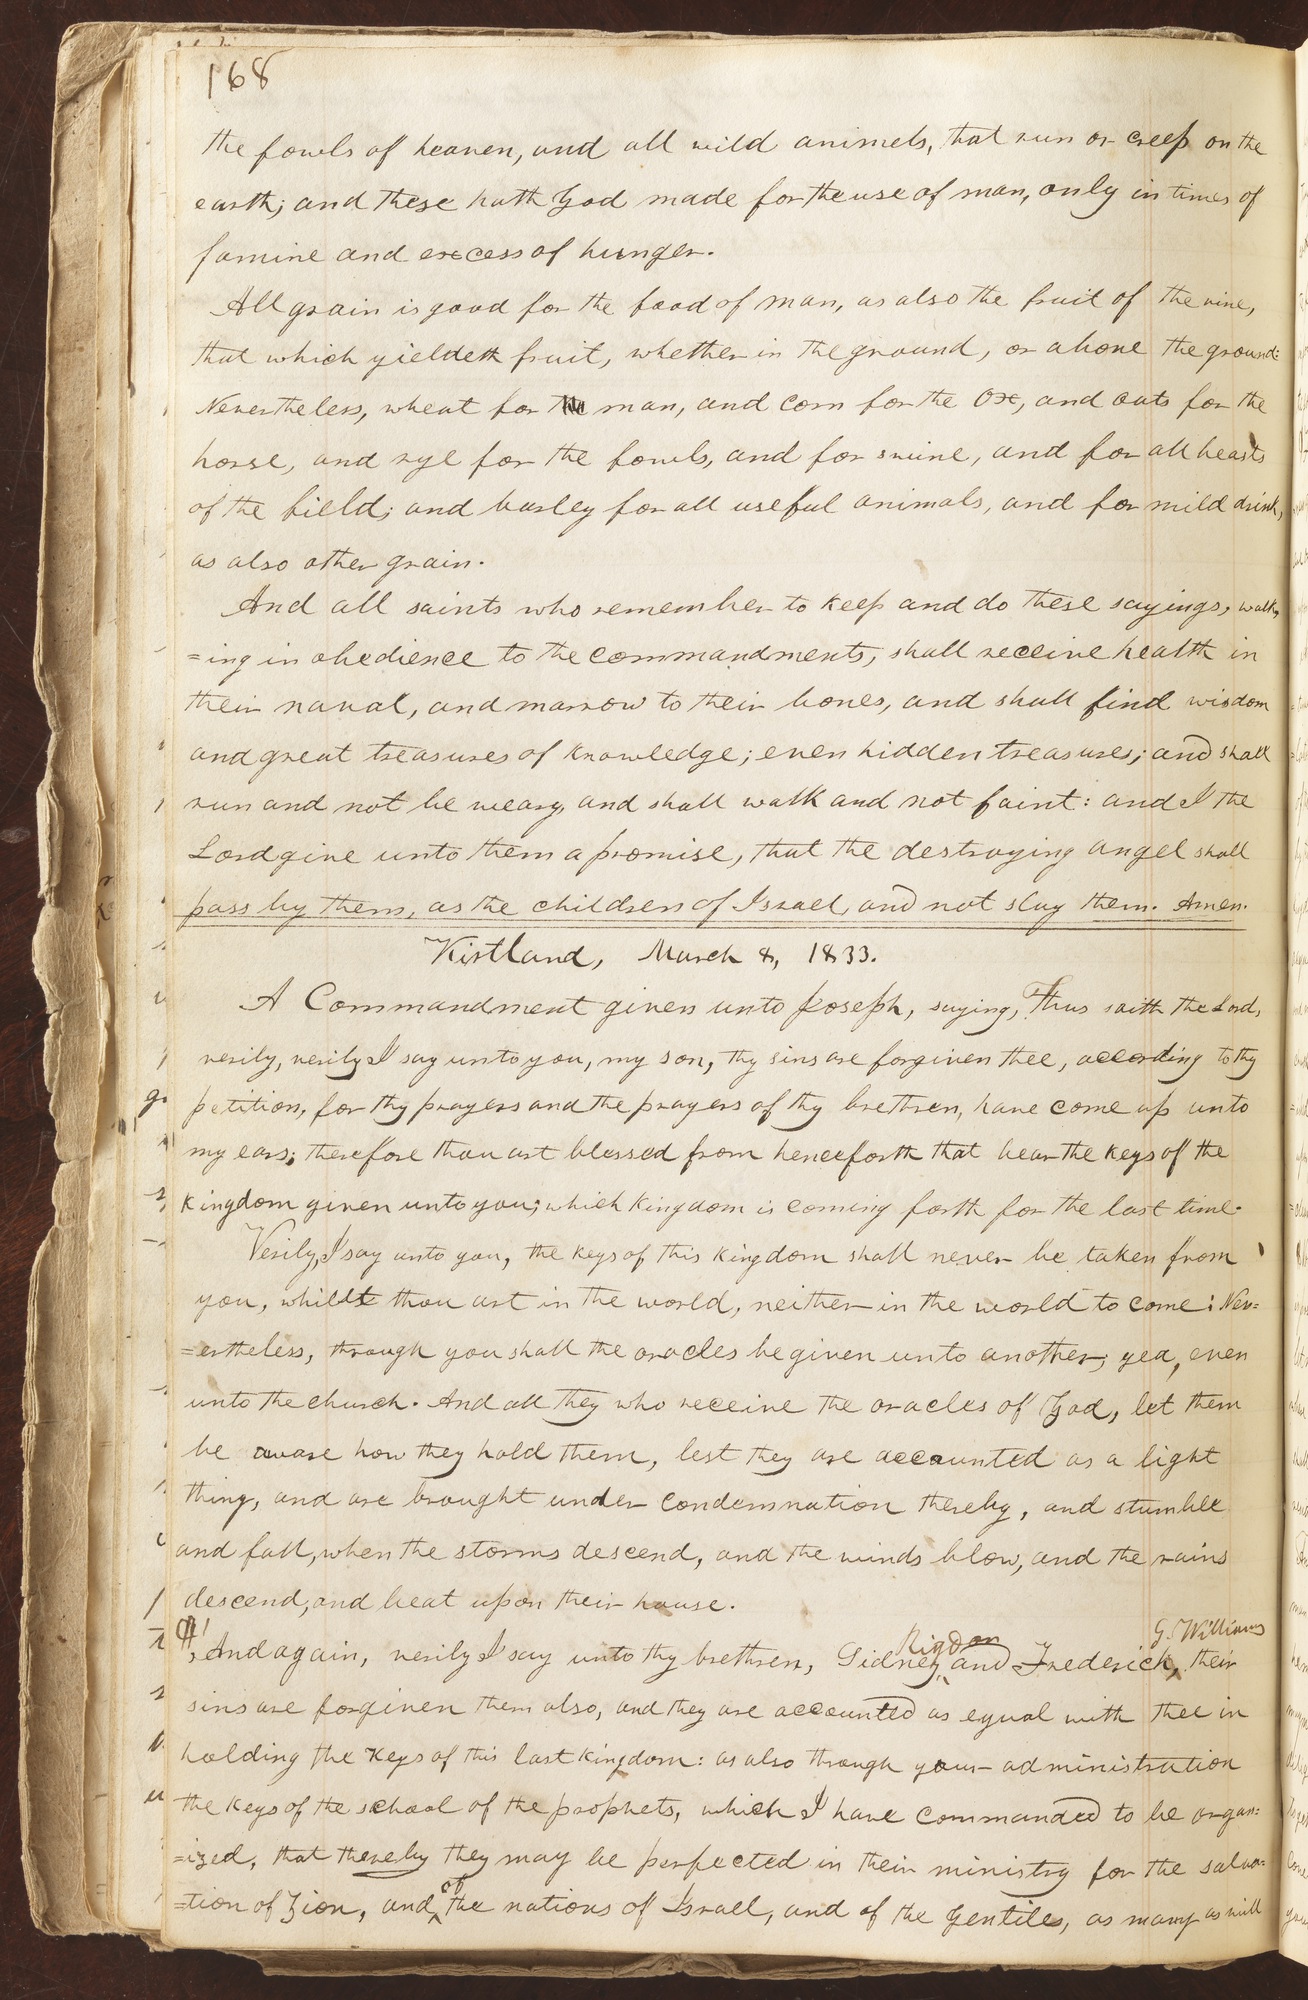 168
the fowls of heaven, and all wild animels, that run or creep on the
earth; and these hath God made for the use of man, only in times of
famine and excess of hunger.
All grain is good for the food of man, as also the fruit of the vine,
that which yieldeth fruit, whether in the ground, or above the ground:
Nevertheless, wheat for man, and corn for the Ox, and oats for the
horse, and rye for the fowls, and for swine, and for all beasts
of the field; and barley for all useful animals, and for mild drink,
as also other grain.
And all saints who remember to keep and do these sayings, walk
=ing in obedience to the commandments, shall receive health in
their naval, and marrow to their bones, and shall find wisdom
and great treasures of knowledge; even hidden treasures; and shall
run and not be weary, and shall walk and not faint: and I the
Lord give unto them a promise, that the destroying angel shall
pass by them, as the children of Israel, and not slay them. Amen.
Kirtland, March 8, 1833.
A Commandment given unto Joseph, saying, Thus saith the Lord,
verily, verily I say unto you, my son, thy sins are forgiven thee, according to thy
petition, for thy prayers and the prayers of thy brethren, have come up unto
my ears; therefore thou art blessed from henceforth that bear the keys of the
kingdom given unto you; which kingdom is coming forth for the last time.
Verily, I say unto you, the keys of this kingdom shall never be taken from
you, whilst thou art in the world, neither in the world to come: Nev=
=ertheless, through you shall the oracles be given unto another; yea, even
unto the church. And all they who receive the oracles of God, let them
be aware how they hold them, lest they are accounted as a light
thing, and are brought under condemnation thereby, and stumble
and fall, when the storms descend, and the winds blow, and the rains
descend, and beat upon their house.
Rigdon G. Williams
¶ And again, verily I say unto thy brethren, Sidney, and Frederick, their
sins are forgiven them also, and they are accounted as equal with thee in
holding the keys of this last kingdom: as also through your administration
the keys of the school of the prophets, which I have commanded to be organ=
=ized, that thereby they may be perfected in their ministry for the salva=
=tion of Zion, and of the nations of Israel, and of the Gentiles, as many as will